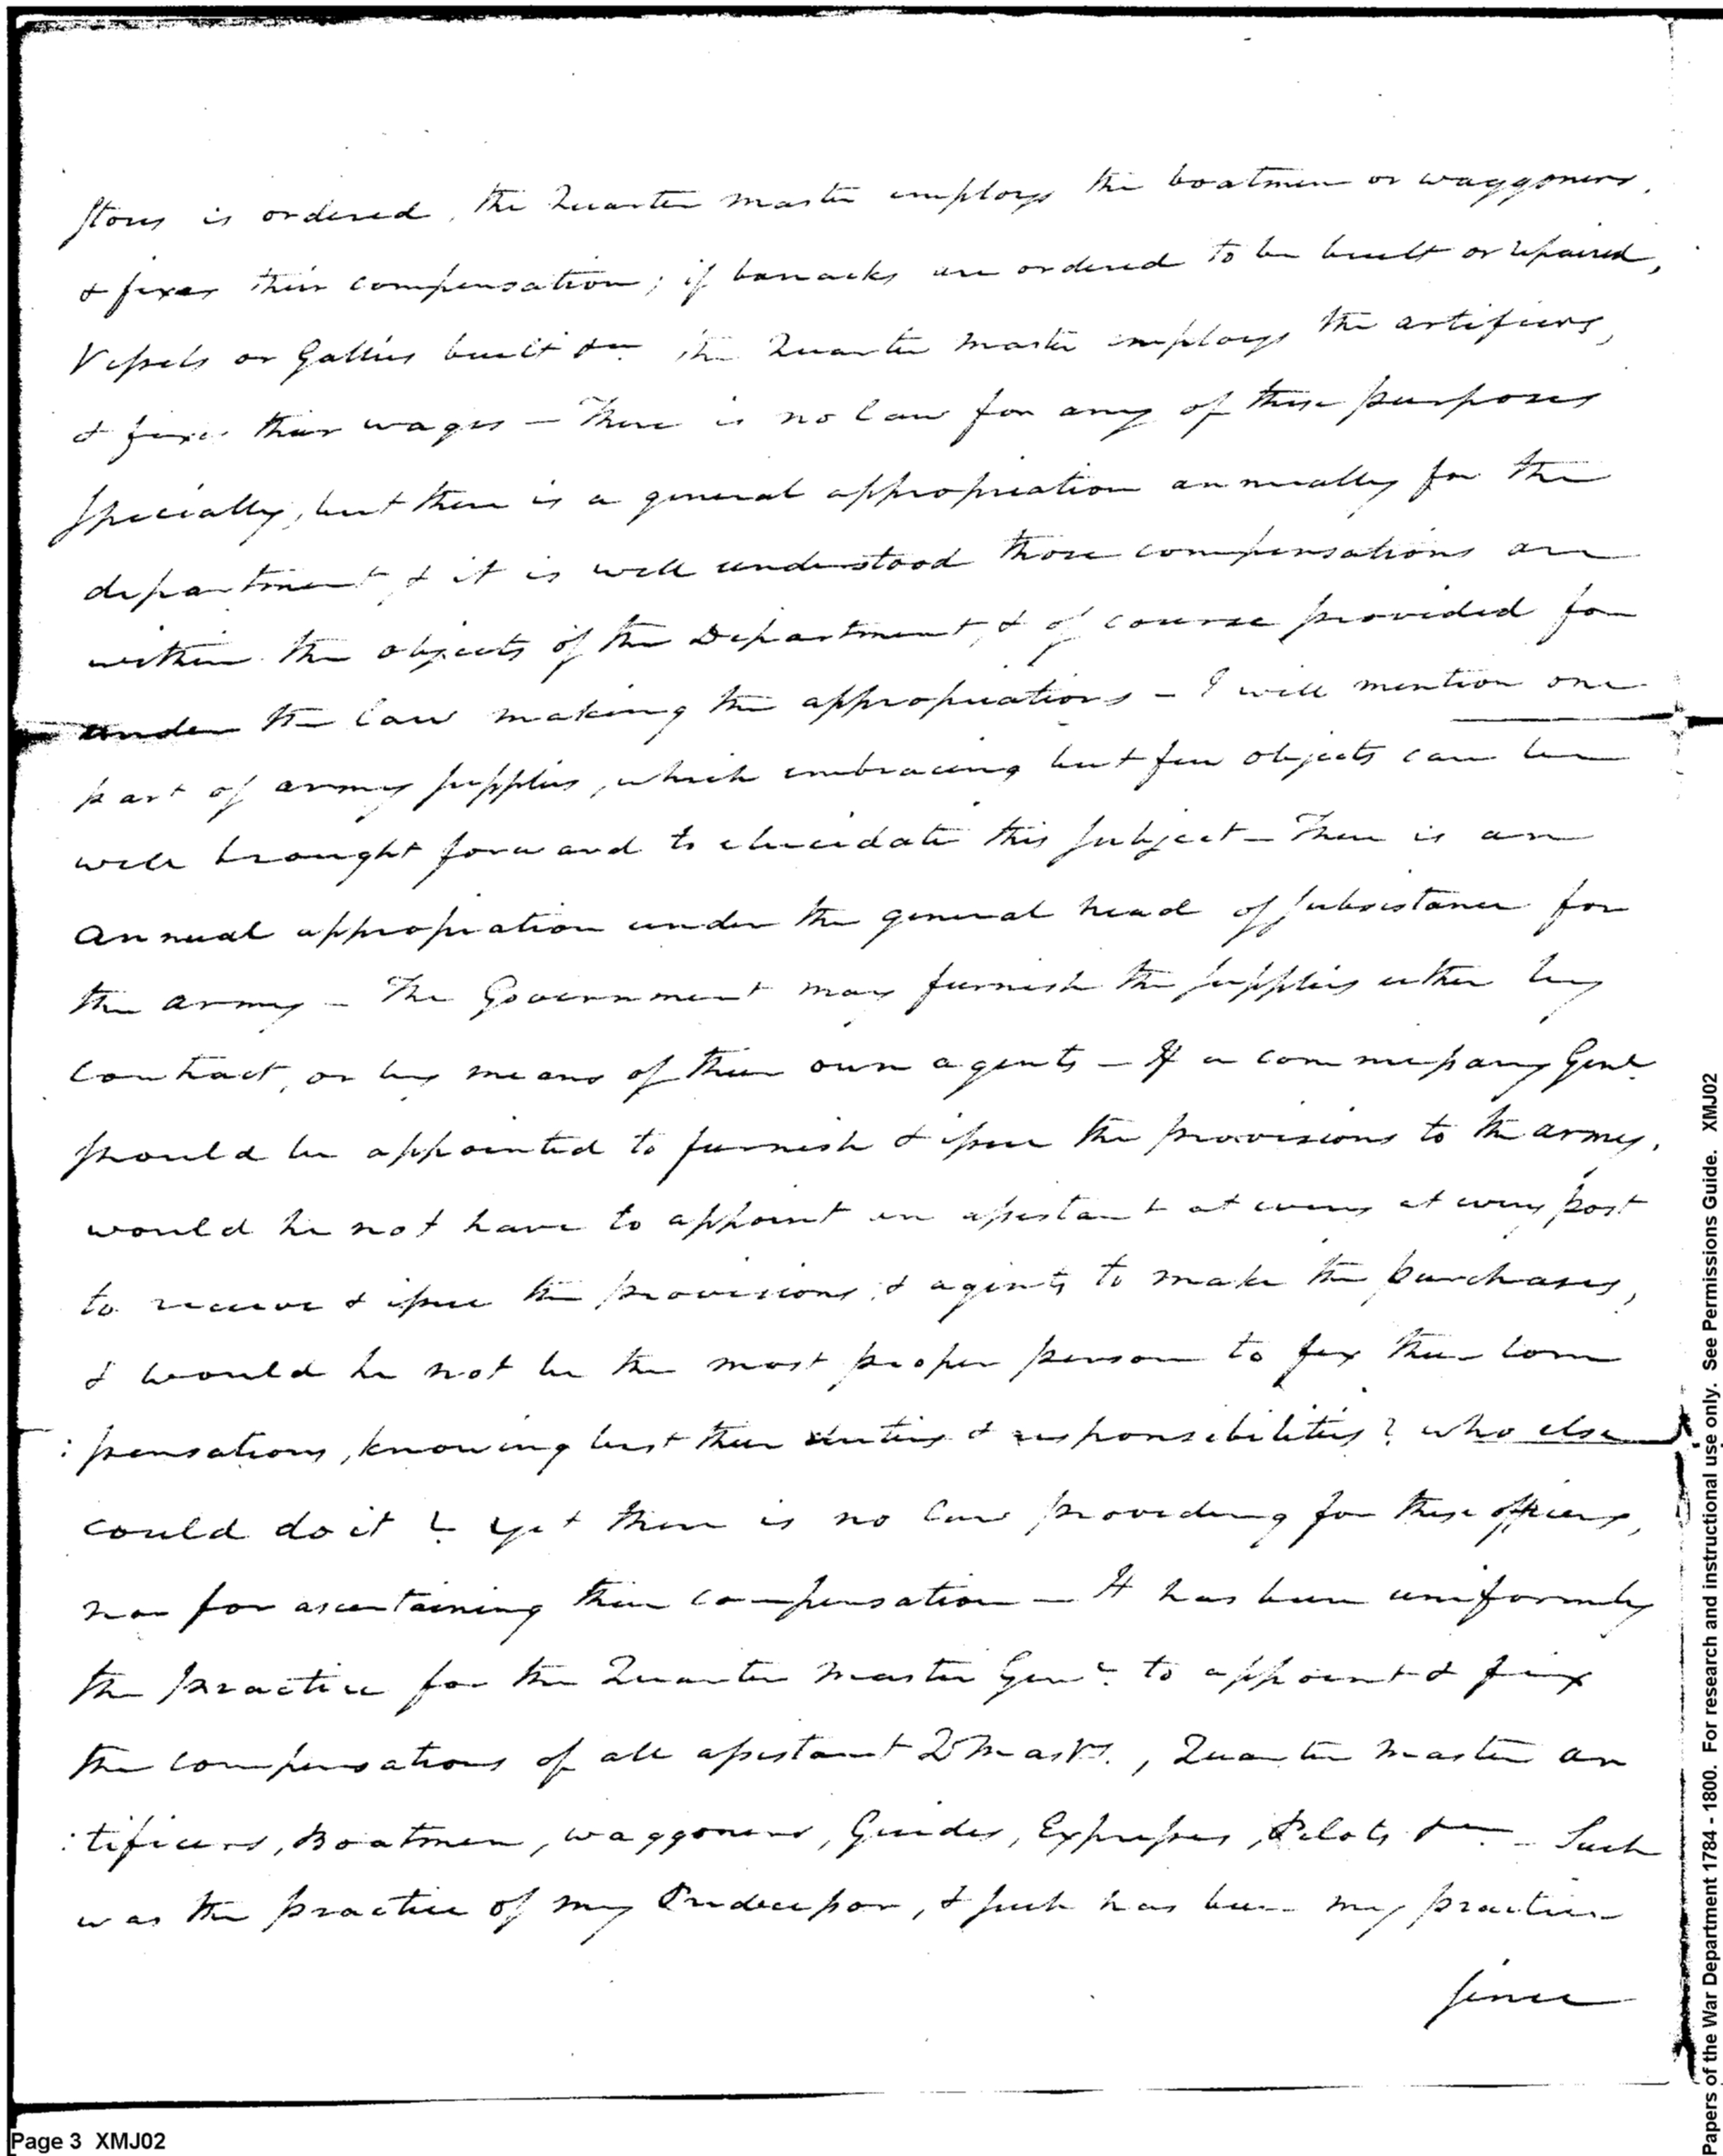 stores is ordered, the Quarter master employs the boatmen or waggoners,
& fixes their compensation; if barracks are ordered to be built or repaired,
Vessels or Gallies built &ca the Quarter Master employs the artificers,
& fixes their wages — There is no law for any of these purposes
specially, but there is a general appropriation annually for the
department, & it is well understood those compensations are
within the objects of the Department, & of course provided for
under the law making the appropriations — I will mention one
part of army supplies, which embracing but few objects can be
well brought forward to elucidate this subject — There is an
annual appropriation under the general head of subsistance for
the army — The Government may furnish the supplies either by
contract, or by means of their own agents — If a commissary Genl
should be appointed to furnish & issue the provisions to the army,
would he not have to appoint an assistant at every at every post
to receive & issue the provisions, & agents to make the purchases,
& would he not be the most proper person to fix their com
: pensations, knowing best their duties & responsibilities? who else
could do it? yet there is no law providing for these officers,
nor for ascertaining their compensation — It has been uniformly
the practice for the Quarter Master Genl. to appoint & fix
the compensations of all assistant Q Mastrs., Quarter Master ar
: tificers, Boatmen, waggoners, Guides, Expresses, Pilots &ca — Such
was the practice of my Predecessor, & such has been my practice
since
Page 3 XMJ02
Papers of the War Department 1784 - 1800. For research and instructional use only. See Permissions Guide. XMJ02